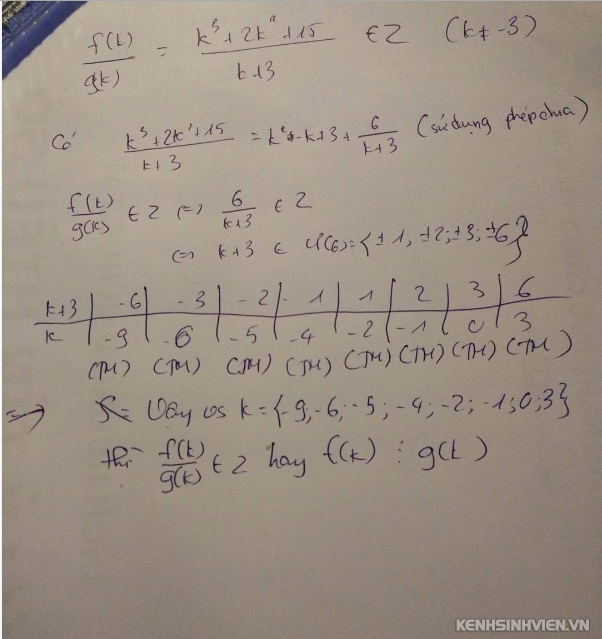 f(k)/g(k) = k³+2k²+15 / k+3 ∈ Z (k ≠ -3)
Có k³+2k²+15 / k+3 = k²-k+3+ 6/k+3 (sử dụng phép chia)
f(k)/g(k) ∈ Z (=) 6/k+3 ∈ Z
(=) k+3 ∈ Ư(6)={±1; ±2; ±3; ±6}
k+3 | -6 | -3 | -2 | -1 | 1 | 2 | 3 | 6
k | -9 | -6 | -5 | -4 | -2 | -1 | 0 | 3
(TM) (TM) (TM) (TM) (TM) (TM) (TM) (TM)
=> Vậy k={-9;-6;-5;-4;-2;-1;0;3}
thì f(k)/g(k) ∈ Z hay f(k) ⋮ g(k)
KENHSINHVIEN.VN